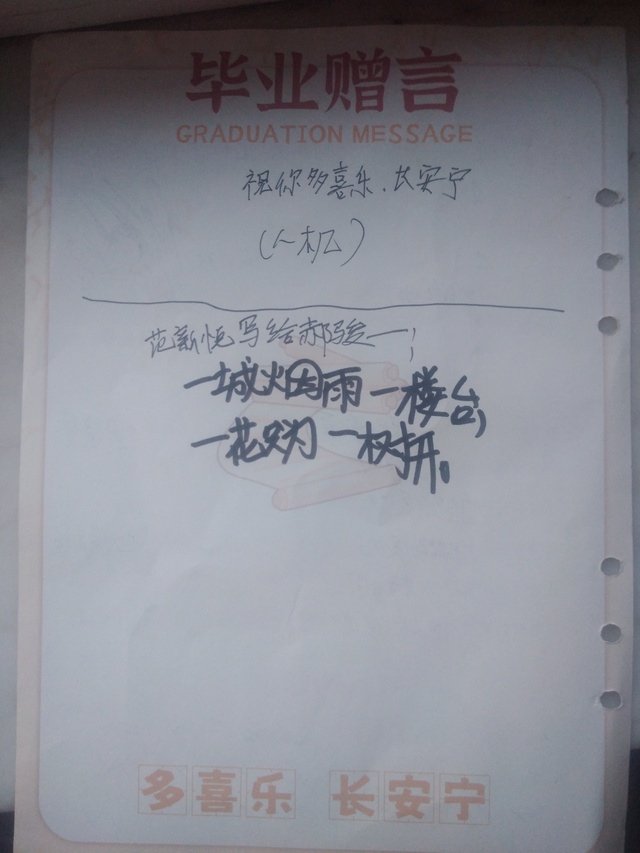 毕业赠言
GRADUATION MESSAGE
祝你多喜乐.长安宁
(人机)
范新恒写给郝骏一;
一城烟雨一楼台,
一花只为一枚拼。
多喜乐 长安宁